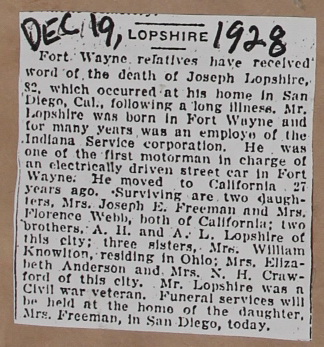 DEC. 19, LOPSHIRE 1928
Fort Wayne relatives have received
word of the death of Joseph Lopshire,
82, which occurred at his home in San
Diego, Cal., following a long illness. Mr.
Lopshire was born in Fort Wayne and
for many years was an employe of the
Indiana Service corporation. He was
one of the first motorman in charge of
an electrically driven street car in Fort
Wayne. He moved to California 27
years ago. Surviving are two daugh-
ters, Mrs. Joseph E. Freeman and Mrs.
Florence Webb, both of California; two
brothers, A. H. and A. L. Lopshire of
this city; three sisters, Mrs. William
Knowlton, residing in Ohio; Mrs. Eliza-
beth Anderson and Mrs. N. H. Craw-
ford of this city. Mr. Lopshire was a
Civil war veteran. Funeral services will
be held at the home of the daughter,
Mrs. Freeman, in San Diego, today.